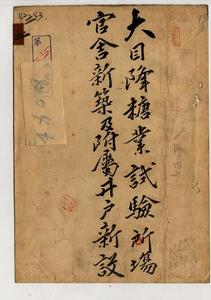 大目降糖業試驗所場
官舍新築及附屬井戶新設